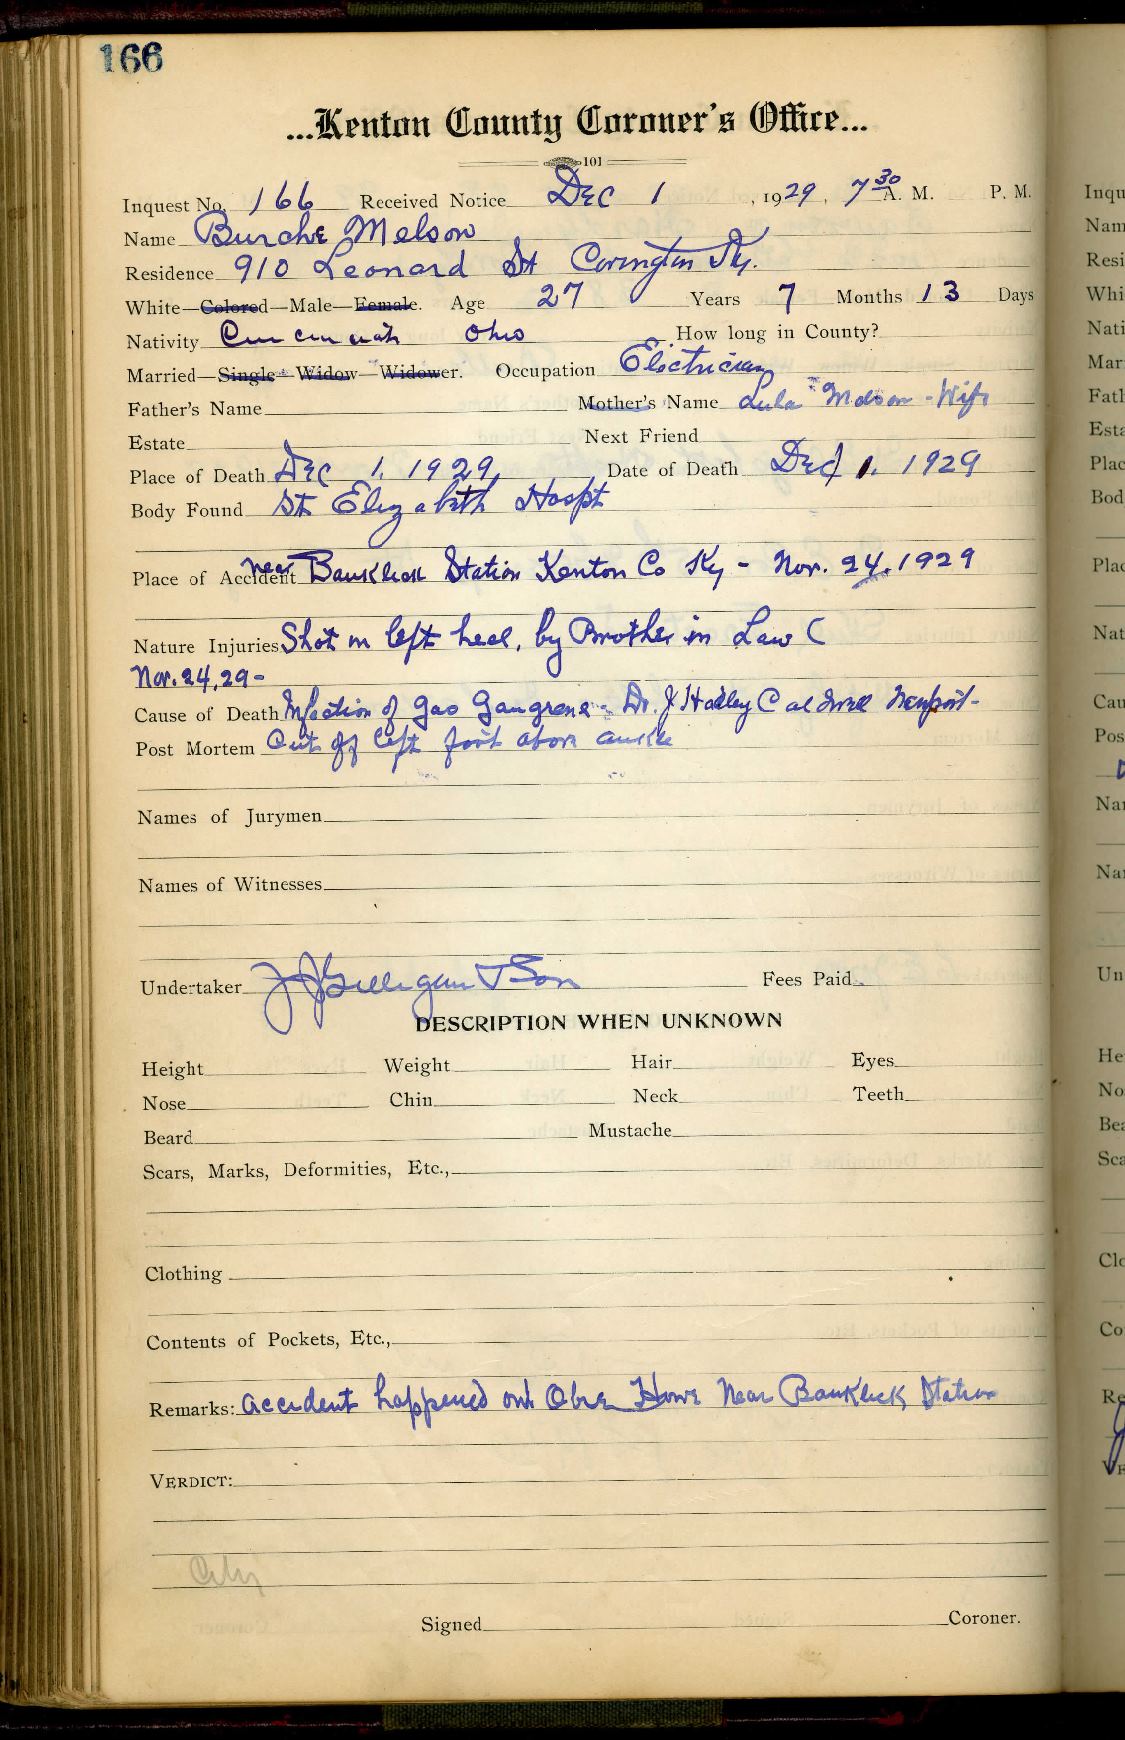 166
...Kenton County Coroner's Office...
101
Inquest No. 166 Received Notice Dec 1, 1929, 7 30 A. M. P. M.
Name Burche Melson
Residence 910 Leonard St Covington Ky.
White—Colored—Male—Female. Age 27 Years 7 Months 13 Days
Nativity Cincinnati Ohio How long in County?
Married—Single—Widow—Widower. Occupation Electrician
Father's Name Mother's Name Lula Melson - Wife
Estate Next Friend
Place of Death Dec 1. 1929 Date of Death Dec 1. 1929
Body Found St Elizabeth Hospt
Place of Accident near Banklick Station Kenton Co Ky - Nov. 24, 1929
Nature Injuries Shot in left heel, by Brother in Law (
Nov. 24, 29-
Cause of Death Infection of Gas Gangrene - Dr. J Hadley Caldwell Newport-
Post Mortem Cut off left foot above ankle
Names of Jurymen
Names of Witnesses
Undertaker J J Gilligan & Son Fees Paid
DESCRIPTION WHEN UNKNOWN
Height Weight Hair Eyes
Nose Chin Neck Teeth
Beard Mustache
Scars, Marks, Deformities, Etc.,
Clothing
Contents of Pockets, Etc.,
Remarks: accident happened Near Banklick Station
VERDICT:
City
Signed Coroner.